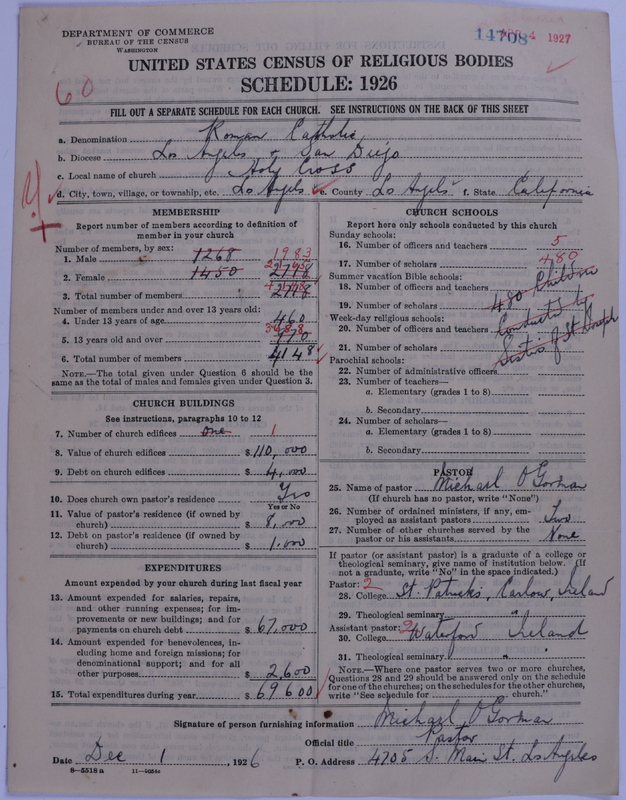 DEPARTMENT OF COMMERCE
BUREAU OF THE CENSUS
WASHINGTON
14708
4 1927
60
UNITED STATES CENSUS OF RELIGIOUS BODIES
SCHEDULE: 1926
FILL OUT A SEPARATE SCHEDULE FOR EACH CHURCH. SEE INSTRUCTIONS ON THE BACK OF THIS SHEET
a. Denomination Roman Catholic
b. Diocese Los Angeles & San Diego
c. Local name of church Holy Cross
d. City, town, village, or township, etc. Los Angeles e. County Los Angeles f. State California
MEMBERSHIP
Report number of members according to definition of member in your church
Number of members, by sex:
1. Male 1268 1983
2. Female 1450
3. Total number of members
Number of members under and over 13 years old:
4. Under 13 years of age 460
5. 13 years old and over 3688
6. Total number of members 4148
NOTE.—The total given under Question 6 should be the
same as the total of males and females given under Question 3.
CHURCH BUILDINGS
See instructions, paragraphs 10 to 12
7. Number of church edifices One 1
8. Value of church edifices $110,000
9. Debt on church edifices $4,000
10. Does church own pastor's residence Yes
Yes or No
11. Value of pastor's residence (if owned by
church) $8,000
12. Debt on pastor's residence (if owned by
church) $1,000
EXPENDITURES
Amount expended by your church during last fiscal year
13. Amount expended for salaries, repairs,
and other running expenses; for im-
provements or new buildings; and for
payments on church debt $67,000
14. Amount expended for benevolences, in-
cluding home and foreign missions; for
denominational support; and for all
other purposes $2,600
15. Total expenditures during year $69600
CHURCH SCHOOLS
Report here only schools conducted by this church
Sunday schools:
16. Number of officers and teachers 5
17. Number of scholars 480
Summer vacation Bible schools:
18. Number of officers and teachers
19. Number of scholars 480 Children
Week-day religious schools:
20. Number of officers and teachers Conducted by
21. Number of scholars Sisters of St Joseph
Parochial schools:
22. Number of administrative officers
23. Number of teachers—
a. Elementary (grades 1 to 8)
b. Secondary
24. Number of scholars—
a. Elementary (grades 1 to 8)
b. Secondary
PASTOR
25. Name of pastor Michael O'Gorman
(If church has no pastor, write "None")
26. Number of ordained ministers, if any, em-
ployed as assistant pastors Two
27. Number of other churches served by the
pastor or his assistants None
If pastor (or assistant pastor) is a graduate of a college or
theological seminary, give name of institution below. (If
not a graduate, write "No" in the space indicated.)
Pastor: 2
28. College St. Patricks, Carlow, Ireland
29. Theological seminary "
Assistant pastor: 2
30. College Waterford Ireland
31. Theological seminary " "
NOTE.—Where one pastor serves two or more churches,
Questions 28 and 29 should be answered only on the schedule
for one of the churches; on the schedules for the other churches,
write "See schedule for church."
Signature of person furnishing information Michael O'Gorman
Official title Pastor
Date Dec 1, 1926 P. O. Address 4705 S. Main St. Los Angeles
8—5518 a 11—9654c